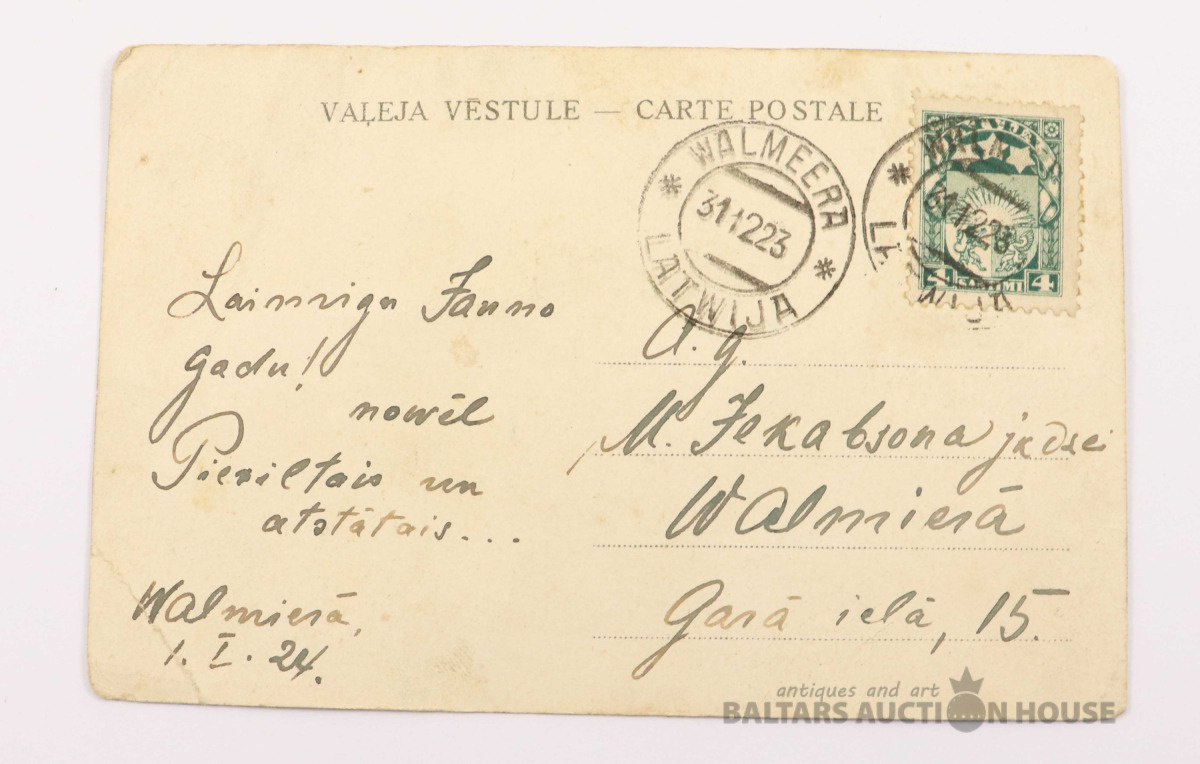 VAĻEJA VĒSTULE — CARTE POSTALE
* WALMEERA *
31 12 23
LATWIJA
LATVIJA
* WALM
31 12 23
4 SANTIMI 4
Laimigu Jauno
gadu!
nowēl
Pieviltais un
atstātais...
Walmierā,
1. I. 24.
A. g.
M. Jekabsona jkdzei
Walmierā
Garā ielā, 15.
antiques and art
BALTARS AUCTION HOUSE